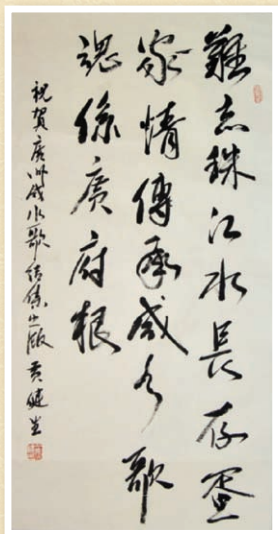 難忘珠江水長存疍
家情傳承咸水歌
魂係廣府根
祝賀广州咸水歌结集出版 黄健生